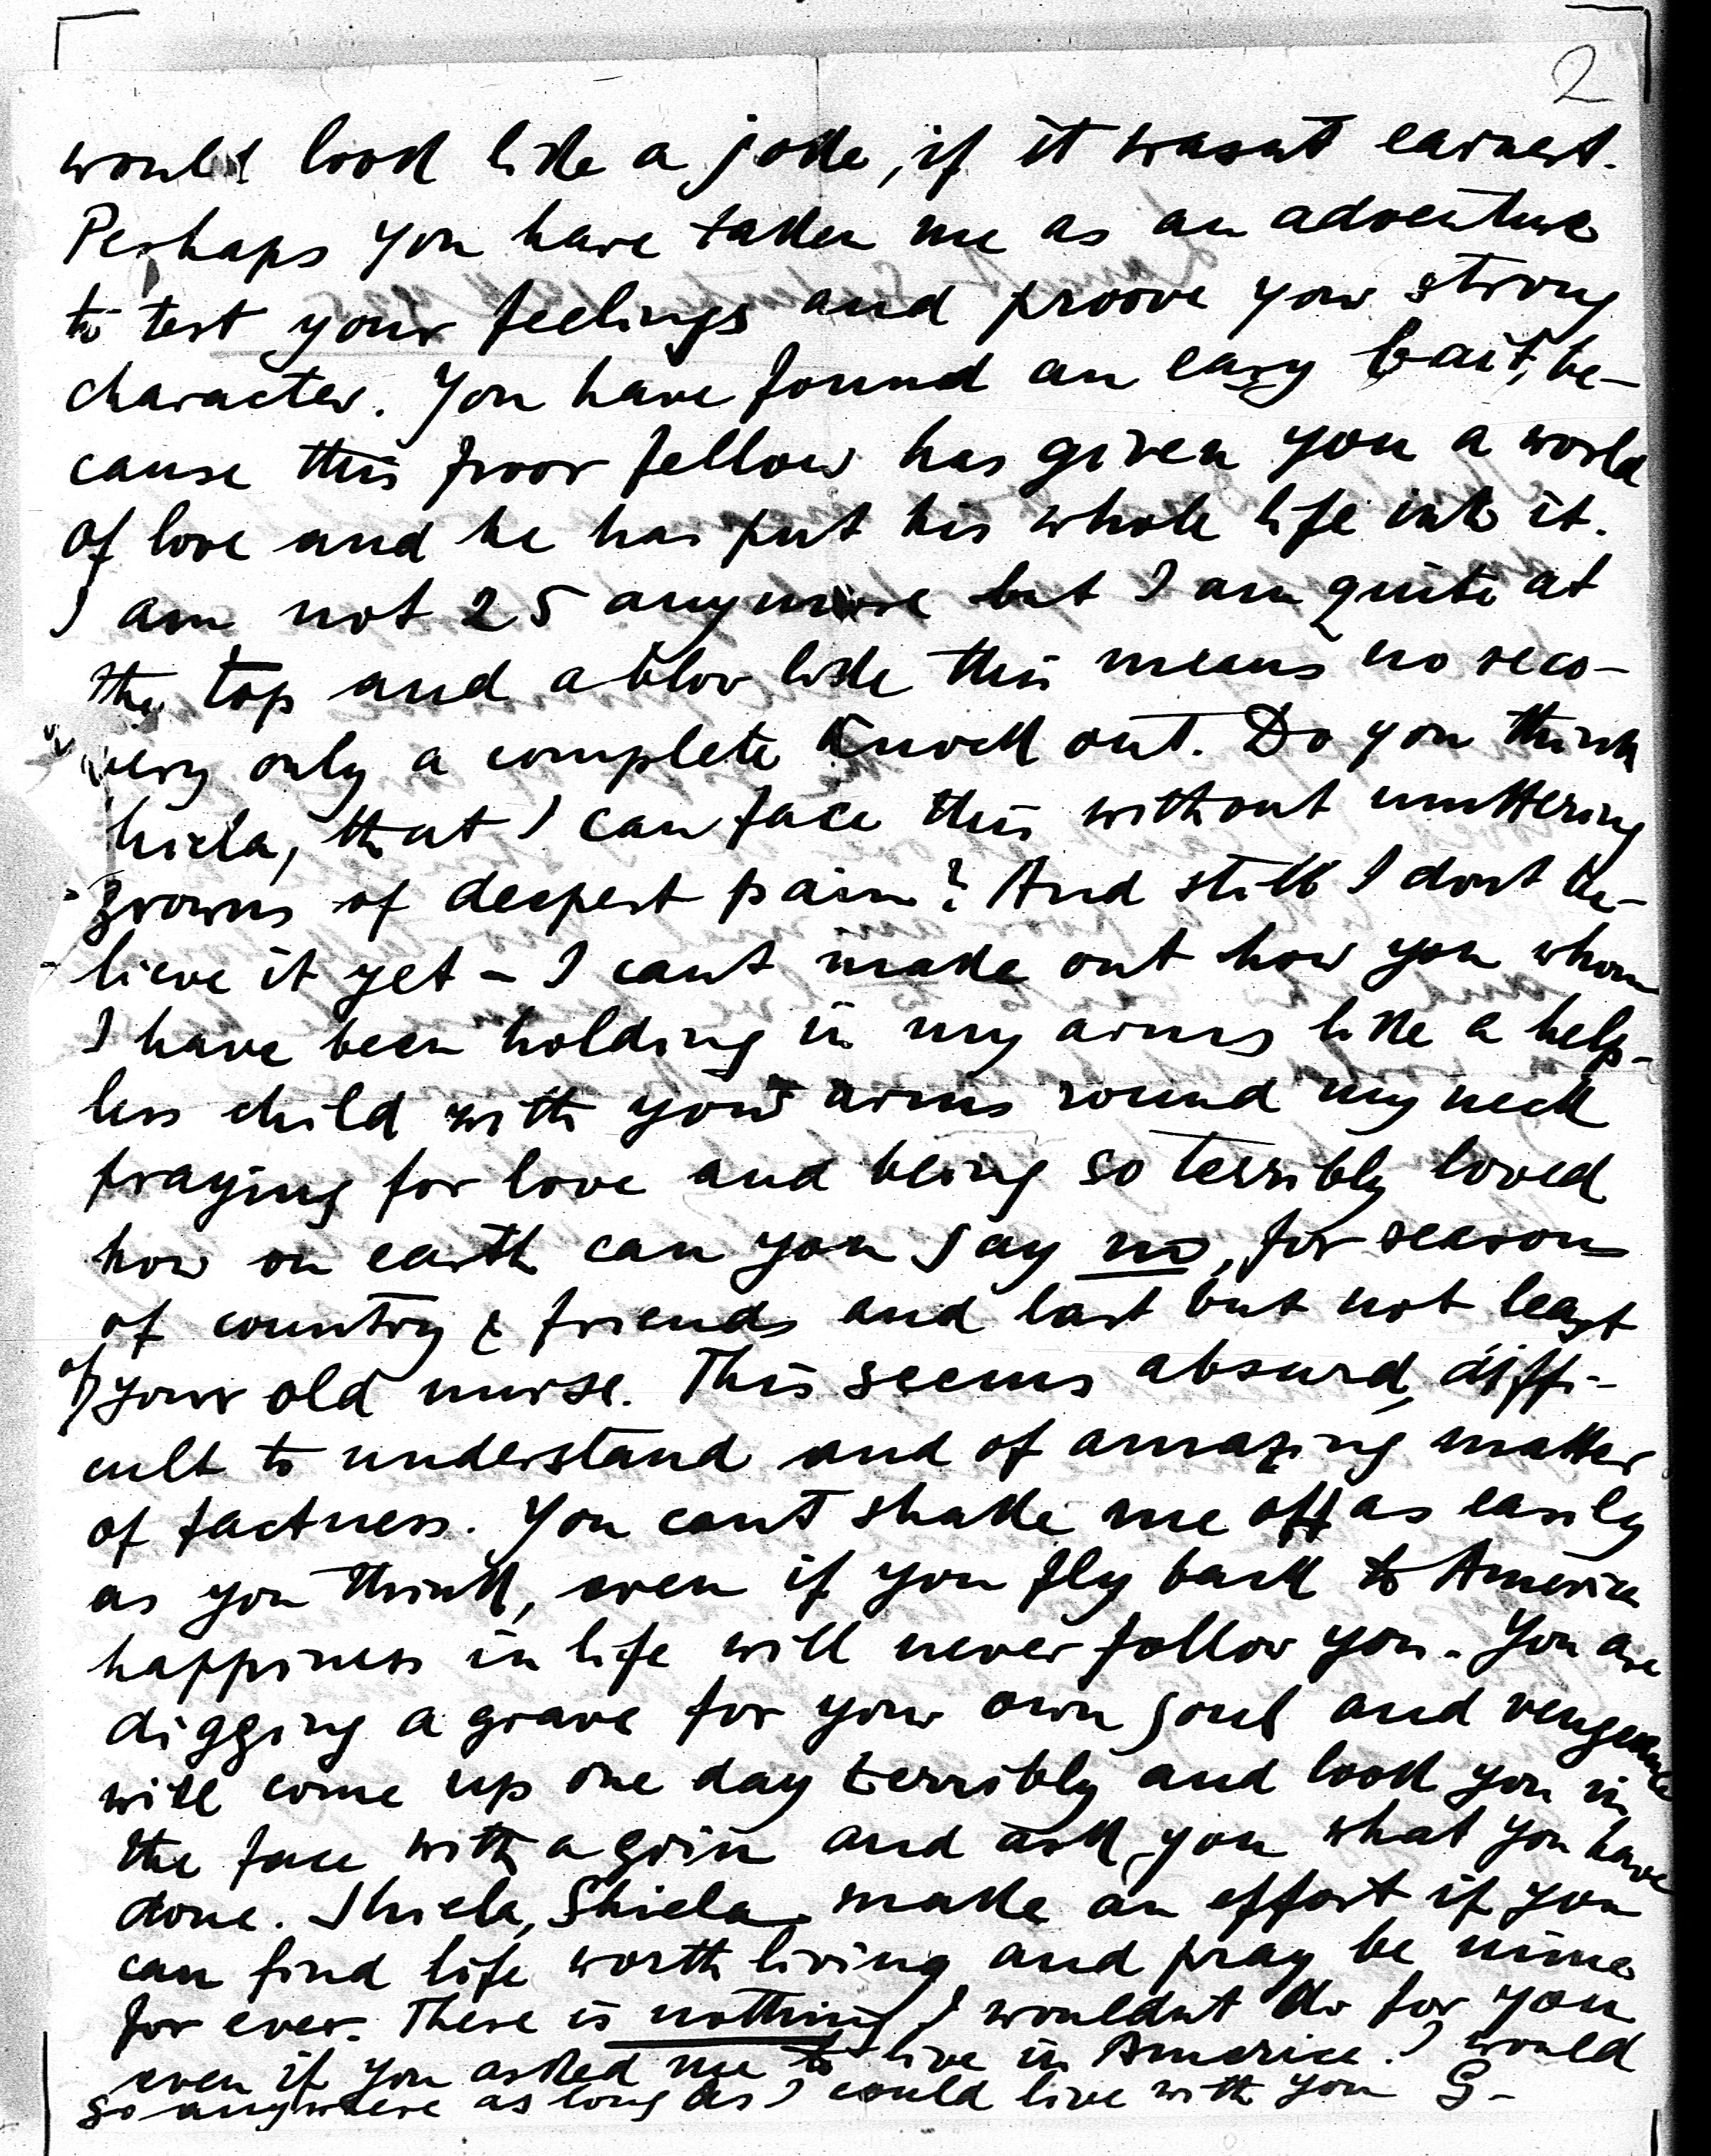 2
would look like a joke, if it wasnt earnest.
Perhaps you have taken me as an adventure
to test your feelings and proove your strong
character. You have found an easy bait, be-
cause this poor fellow has given you a world
of love and he has put his whole life into it.
I am not 25 anymore but I am quite at
the top and a blow like this means no reco-
very only a complete knock out. Do you think
hiela, that I can face this without muttering
growns of deepest pain? And still I dont be-
lieve it yet - I cant make out how you whom
I have been holding in my arms like a help-
less child with your arms round my neck
praying for love and being so terribly loved
how on earth can you say no, for reasons
of country & friends and last but not least
of your old nurse. This seems absurd, diffi-
cult to understand and of amazing matter
of factness. You cant shake me off as easily
as you think, even if you fly back to America
happiness in life will never follow you. You are
digging a grave for your own soul and vengeance
will come up one day terribly and look you in
the face with a grin and ask you what you have
done. Shiela, Shiela make an effort if you
can find life worth living and pray be mine
for ever. There is nothing I wouldnt do for you
even if you asked me to live in America. I would
go anywhere as long as I could live with you G-